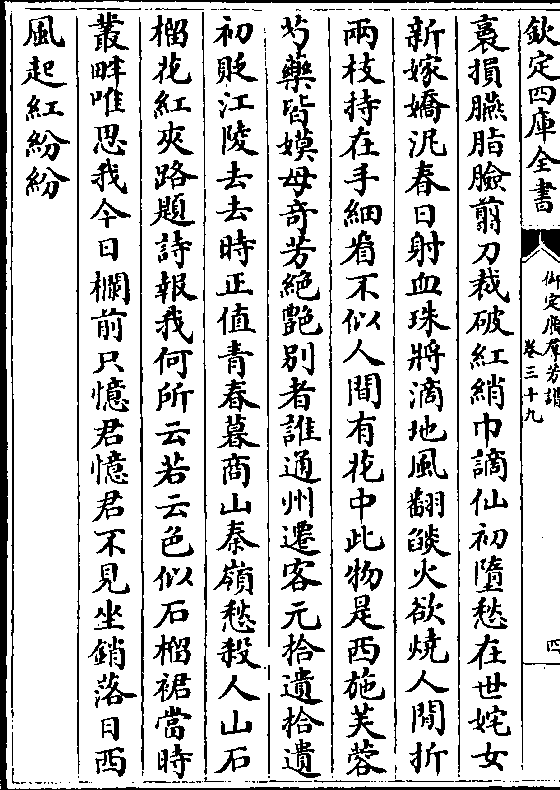 欽定四庫全書
御定廣羣芳譜
卷三十九
四
裛損臙脂臉剪刀裁破紅綃巾謫仙初墮愁在世姹女
新嫁嬌泥春日射血珠將滴地風翻燄火欲燒人閒折
兩枝持在手細看不似人間有花中此物是西施芙蓉
芍藥皆嫫母奇芳絶艷别者誰通州遷客元拾遺拾遺
初貶江陵去去時正值青春暮商山秦嶺愁殺人山石
榴花紅夾路題詩報我何所云若云色似石榴裙當時
叢畔唯思我今日欄前只憶君憶君不見坐銷落日西
風起紅紛紛